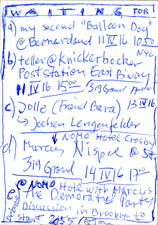 WAITING FOR!
a) my second "Balloon Dog"
@ Bernardaud 11 IV 16 1050
NYC
b) teller @ Knickerbocker
Post Station East Biway
11 IV 16 1500 319 Grand
c) Jolle (Friend Bera)
→ Jochen Lengenfelder
↓ NOMO Hotel Crosby
d) Marcus Nispel @ St
319 Grand 14 IV 16 1700
e) @ NOMO Hotel with Marcus
The Democratic Party
Discussion in Brooklyn to
start 2055